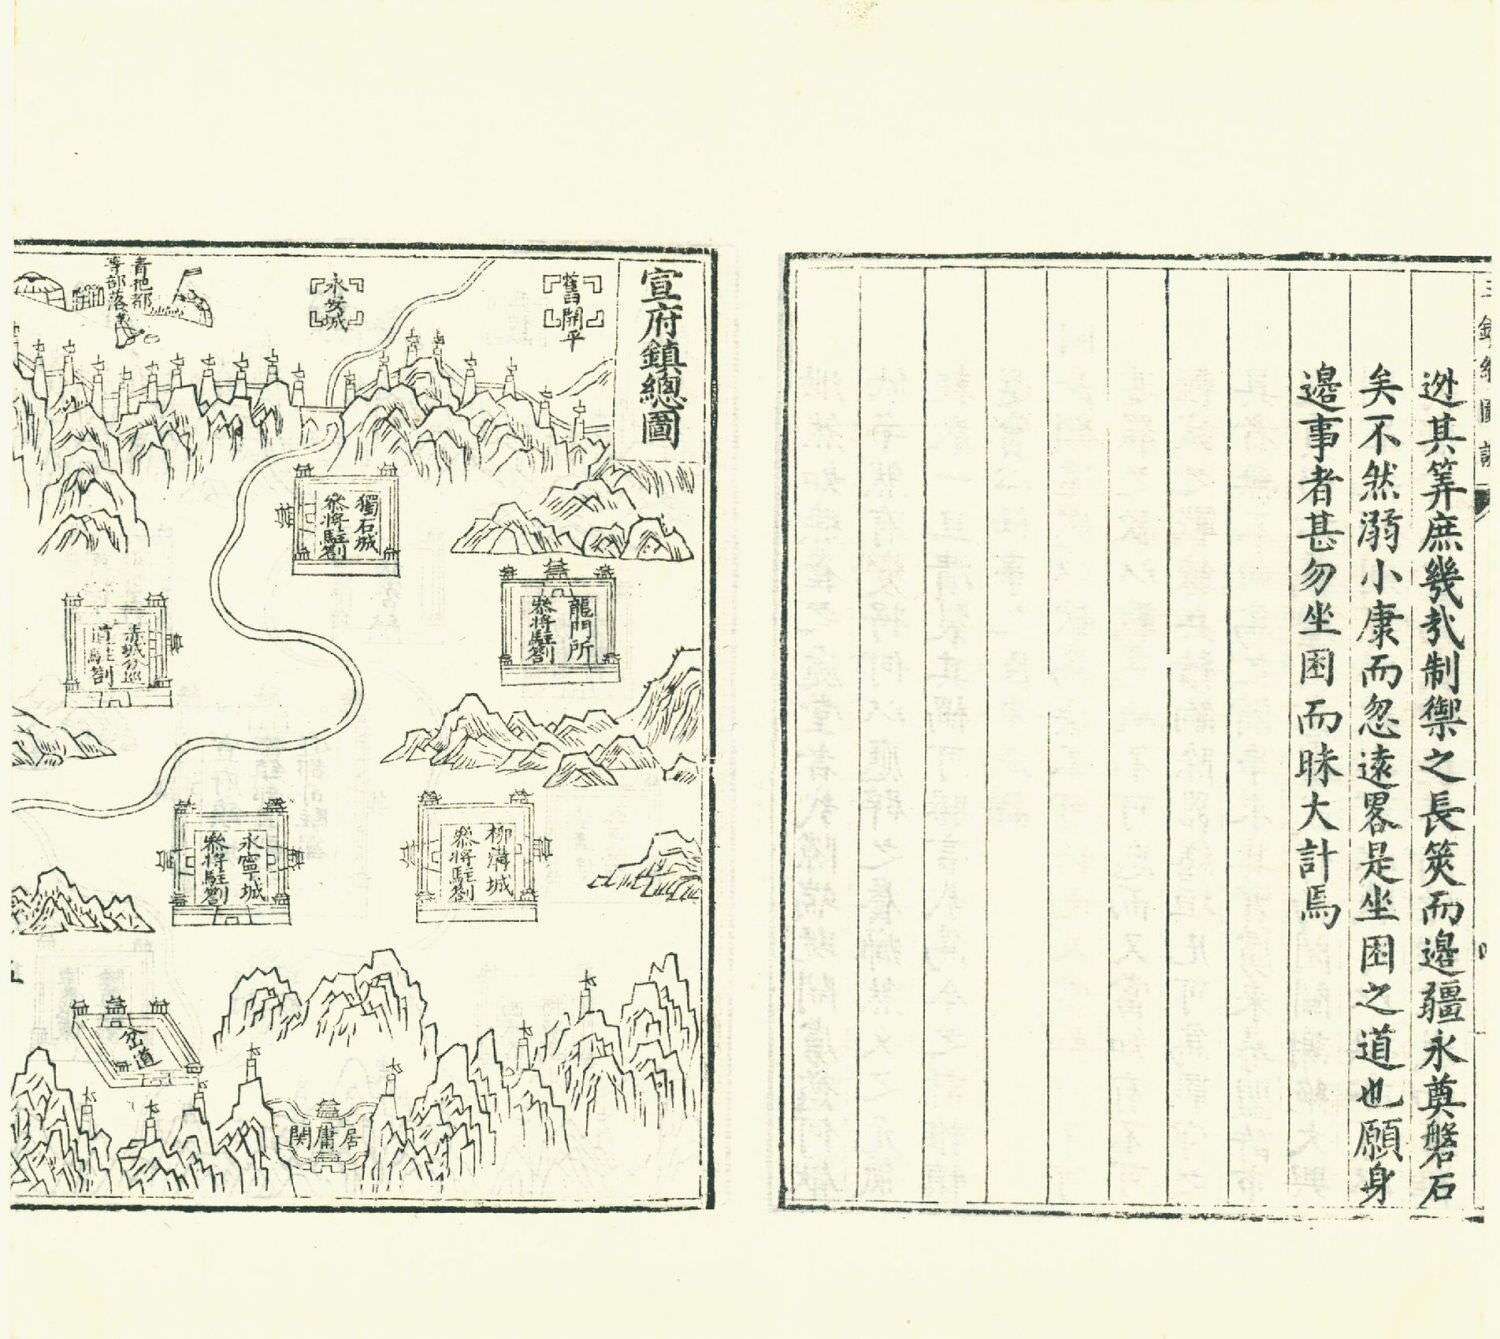 迯其筭庶幾㢤制禦之長筴而邉疆永奠磐石
矣不然溺小康而忽遠畧是坐困之道也願身
邉事者甚勿坐困而昧大計焉
宣府鎮總圖
舊開平
永安城
青把都
等部落
獨石城
叅將駐劄
龍門所
叅將駐劄
赤城分巡
道駐劄
柳溝城
叅將駐劄
永寧城
叅將駐劄
岔道
居庸関